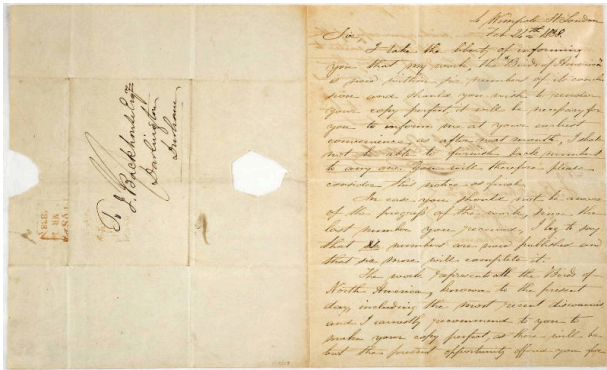 To J. Backhouse Esqre
Darlington
Durham
4 Wimpole St London
Feb 24th 1838.
Sir
I take the liberty of informing
you that my work, the "Birds of America"
is now within six numbers of its conclu
sion and should you wish to render
your copy perfect it will be necessary for
you to inform me at your earliest
convenience, as after next month, I shall
not be able to furnish back numbers
to any one. You will therefore please
consider this notice as final.
In case you should not be aware
of the progress of the work, since the
last number you received, I beg to say
that numbers are now published and
that six more will complete it.
The work represents all the Birds of
North America, known to the present
day, including the most recent discoveries
and I earnestly recommend to you to
make your copy perfect, as there will be
but the present opportunity offered you for